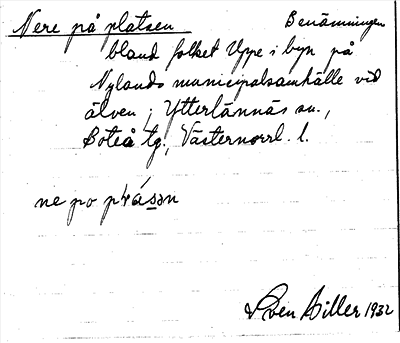 Nere på platsen Benämningen
bland folket Uppe i byn på
Nylands municipalsamhälle vid
älven; Ytterlännäs sn.,
Boteå tg., Västernorrl. l.
ne po pḷásən
Sven Hiller 1932